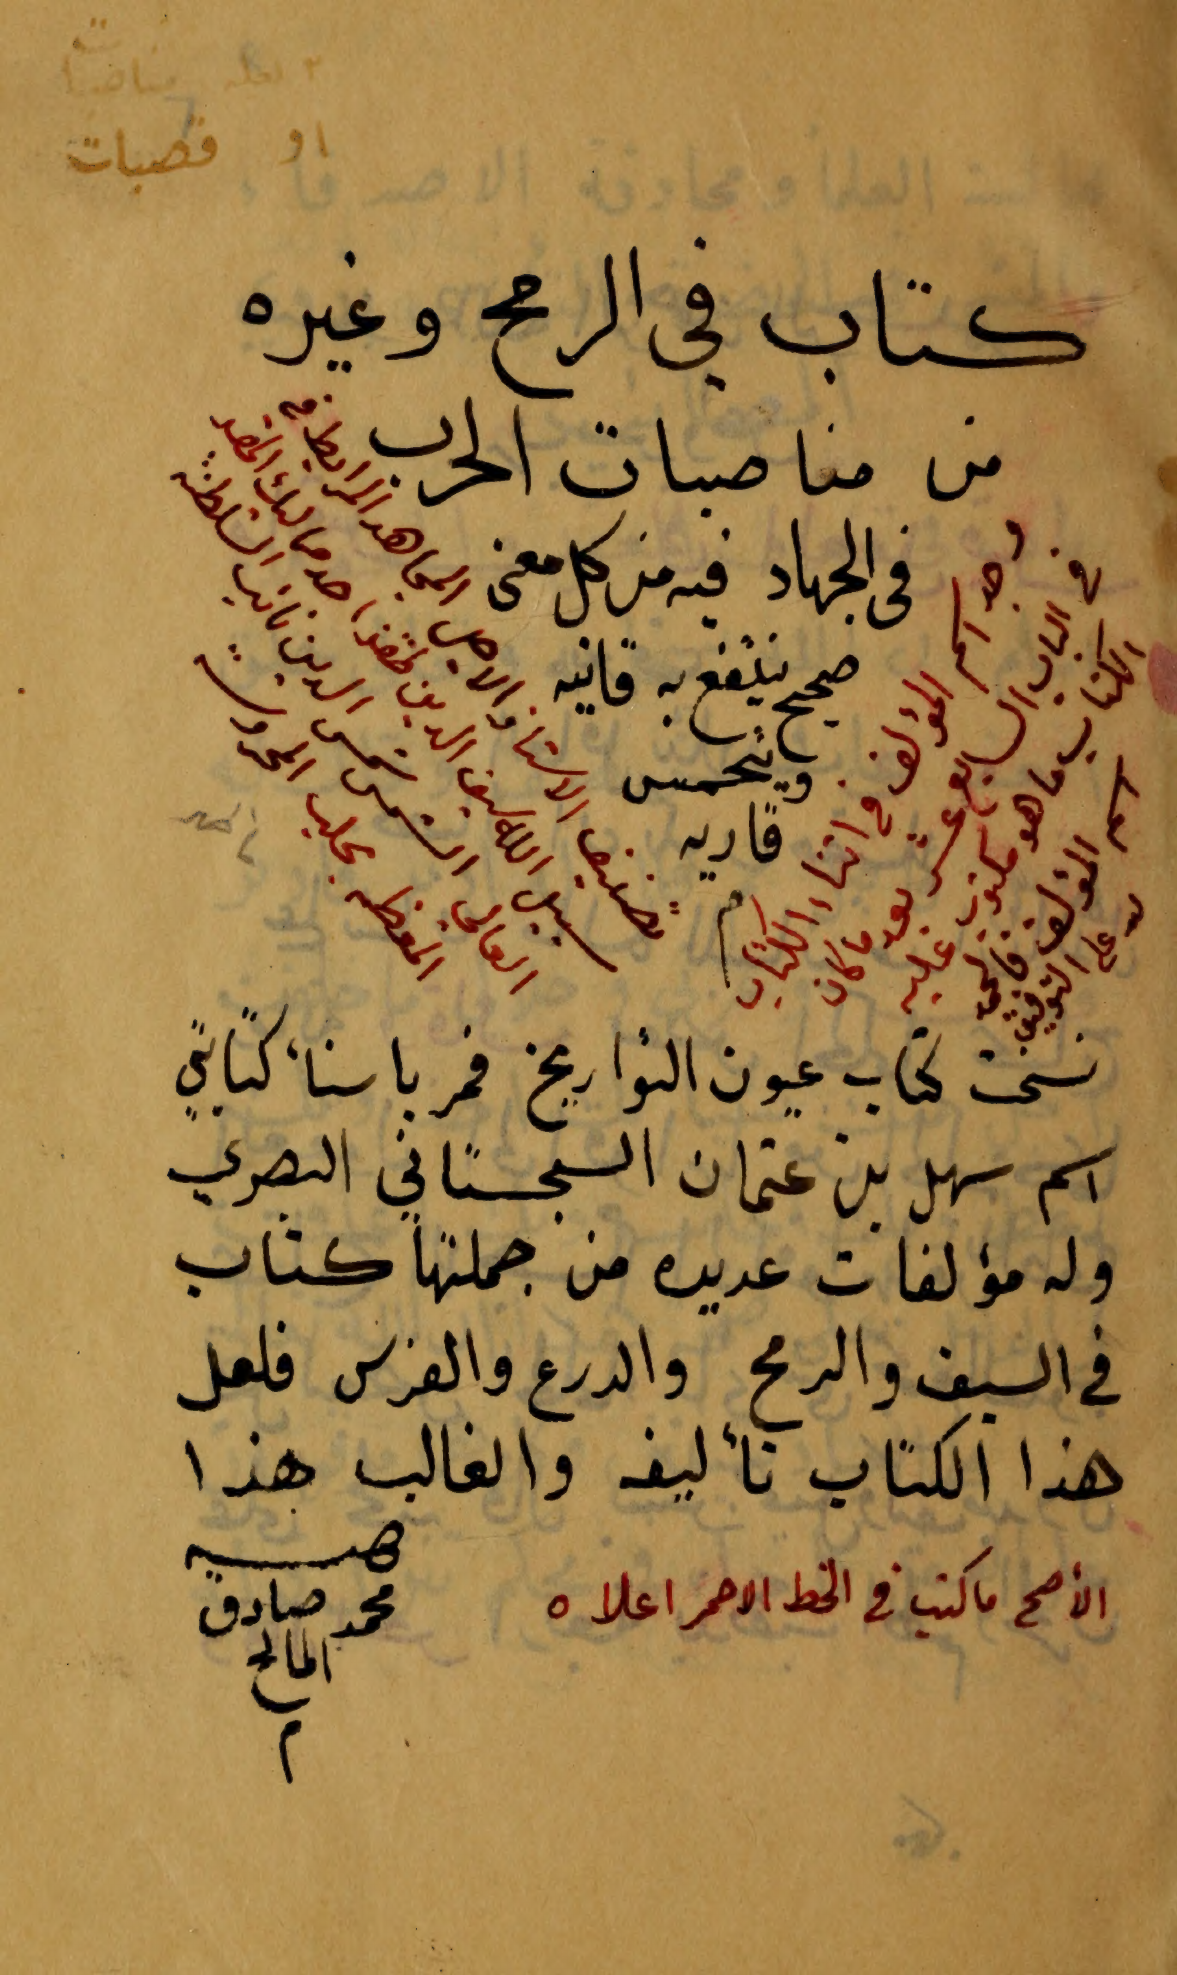 او قصبات
كتاب في الرمح وغيره
من مناصبات الحرب
في الجهاد فيه من كل معنى
صحيح ينتفع به قانيه
ويتحمس
قاريه
م
تصنيف الاستاذ الاجل المجاهد المرابط في
سبيل الله سيف الدين طقتمر احد مماليك المقر
العالي الشمسي شمس الدين نائب السلطنة
المعظمه بحلب المحروسة
وجد اسم المؤلف في اثناء الكتاب
في الباب السابع عشر بعد ما كان
الكتاب ما هو مكتوب عليه
اسم المؤلف فالحمد
لله على التوفيق
نسخت كتاب عيون التواريخ فمر باثناء كتابتي
اسم سهل بن عثمان السجستاني البصري
وله مؤلفات عديده من جملتها كتاب
في السيف والرمح والدرع والفرس فلعل
هذا الكتاب تأليفه والغالب هذا
الأصح ما كتب في الخط الاحمر اعلاه
محمد صادق
المالح
م